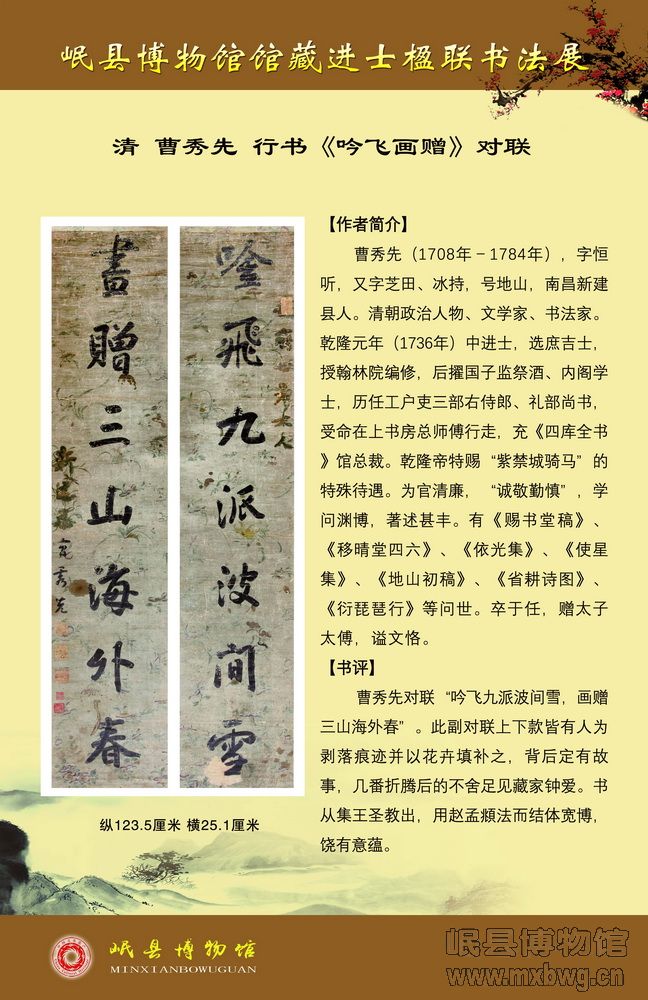 岷县博物馆馆藏进士楹联书法展
清 曹秀先 行书《吟飞画赠》对联
唫飛九派波间雪
畫贈三山海外春
大人
新建
宛秀先
纵123.5厘米 横25.1厘米
【作者简介】
曹秀先（1708年－1784年），字恒
听，又字芝田、冰持，号地山，南昌新建
县人。清朝政治人物、文学家、书法家。
乾隆元年（1736年）中进士，选庶吉士，
授翰林院编修，后擢国子监祭酒、内阁学
士，历任工户吏三部右侍郎、礼部尚书，
受命在上书房总师傅行走，充《四库全书
》馆总裁。乾隆帝特赐“紫禁城骑马”的
特殊待遇。为官清廉，“诚敬勤慎”，学
问渊博，著述甚丰。有《赐书堂稿》、
《移晴堂四六》、《依光集》、《使星
集》、《地山初稿》、《省耕诗图》、
《衍琵琶行》等问世。卒于任，赠太子
太傅，谥文恪。
【书评】
曹秀先对联“吟飞九派波间雪，画赠
三山海外春”。此副对联上下款皆有人为
剥落痕迹并以花卉填补之，背后定有故
事，几番折腾后的不舍足见藏家钟爱。书
从集王圣教出，用赵孟頫法而结体宽博，
饶有意蕴。
岷县博物馆
MINXIANBOWUGUAN
岷县博物馆
www.mxbwg.cn